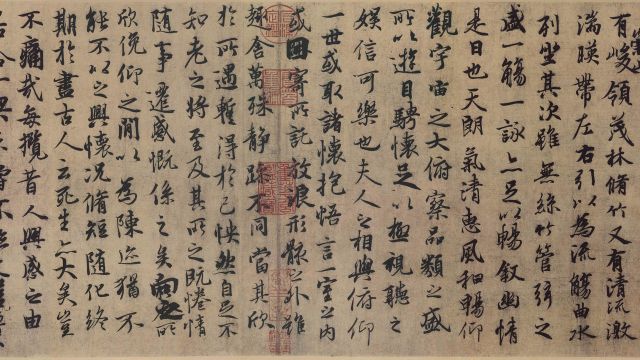 有峻領茂林脩竹又有清流激
湍暎帶左右引以為流觴曲水
列坐其次雖無絲竹管弦之
盛一觴一詠亦足以暢敘幽情
是日也天朗氣清惠風和暢仰
觀宇宙之大俯察品類之盛
所以遊目騁懷足以極視聽之
娛信可樂也夫人之相與俯仰
一世或取諸懷抱悟言一室之內
或因寄所託放浪形骸之外雖
趣舍萬殊靜躁不同當其欣
於所遇暫得於己怏然自足不
知老之將至及其所之既惓情
隨事遷感慨係之矣向之所
欣俛仰之閒以為陳迹猶不
能不以之興懷況脩短隨化終
期於盡古人云死生亦大矣豈
不痛哉每攬昔人興感之由